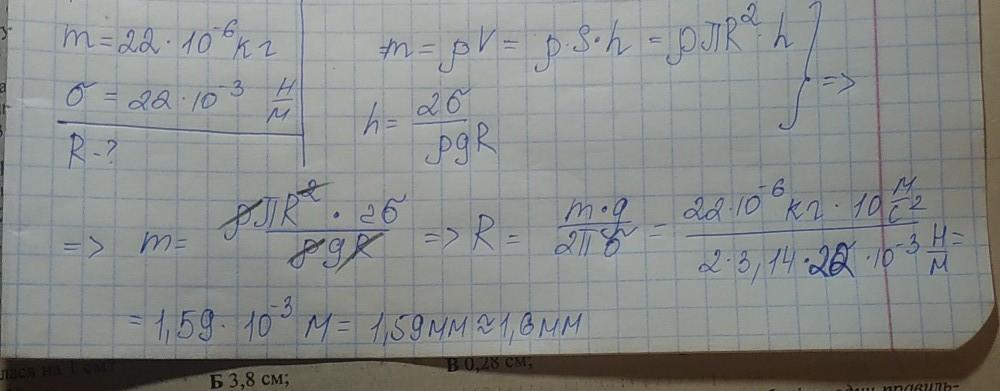 m = 22·10⁻⁶ кг
σ = 22·10⁻³ Н/м
R - ?
m = ρV = ρ·S·h = ρπR²·h } =>
h = 2σ/ρgR
=> m = ρπR²·2σ/ρgR => R = m·g/2πσ = 22·10⁻⁶ кг·10 м/с² / 2·3,14·22·10⁻³ Н/м =
= 1,59·10⁻³ м = 1,59 мм ≈ 1,6 мм
лася на 1 см?
В 0,28 см;
Б 3,8 см;